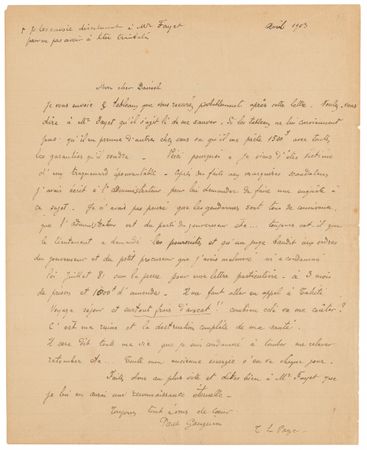 Avril 1903
+ Je les envoie directement à Mr Fayet
pour ne pas avoir à être
Mon cher Daniel
Je vous envoie tableaux que vous recevrez probablement après cette lettre. Voulez-vous
dire à Mr Fayet qu'il s'agit là de me sauver. Si les tableaux ne lui conviennent
pas qu'il en prenne d'autres chez vous ou qu'il me prête 1500f avec toutes
les garanties qu'il voudra. — Voici pourquoi — je viens d'être victime
d'un traquenard épouvantable — Après des faits aux Marquises scandaleux
j'avais écrit à l'administrateur pour lui demander de faire une enquête à
ce sujet. — Je n'avais pas pensé que les gendarmes sont tous de connivence,
que l'administrateur est du parti du gouverneur etc... toujours est-il que
le lieutenant a demandé les poursuites et qu'un juge bandit aux ordres
du gouverneur et du petit procureur que j'avais malmené m'a condamné
loi Juillet 81 sur la presse pour une lettre particulière — à 3 mois
de prison et 1000f d'amende — Il me faut aller en appel à Tahiti
Voyage séjour et surtout frais d'avocat!! combien cela va me coûter?
C'est ma ruine et la destruction complète de ma santé.
Il sera dit toute ma vie que je suis condamné à tomber me relever
retomber etc... Toute mon ancienne énergie s'en va chaque jour.
Faites donc au plus vite et dites bien à Mr Fayet que
je lui en aurai une reconnaissance éternelle.
Toujours tout à vous de cœur
Paul Gauguin